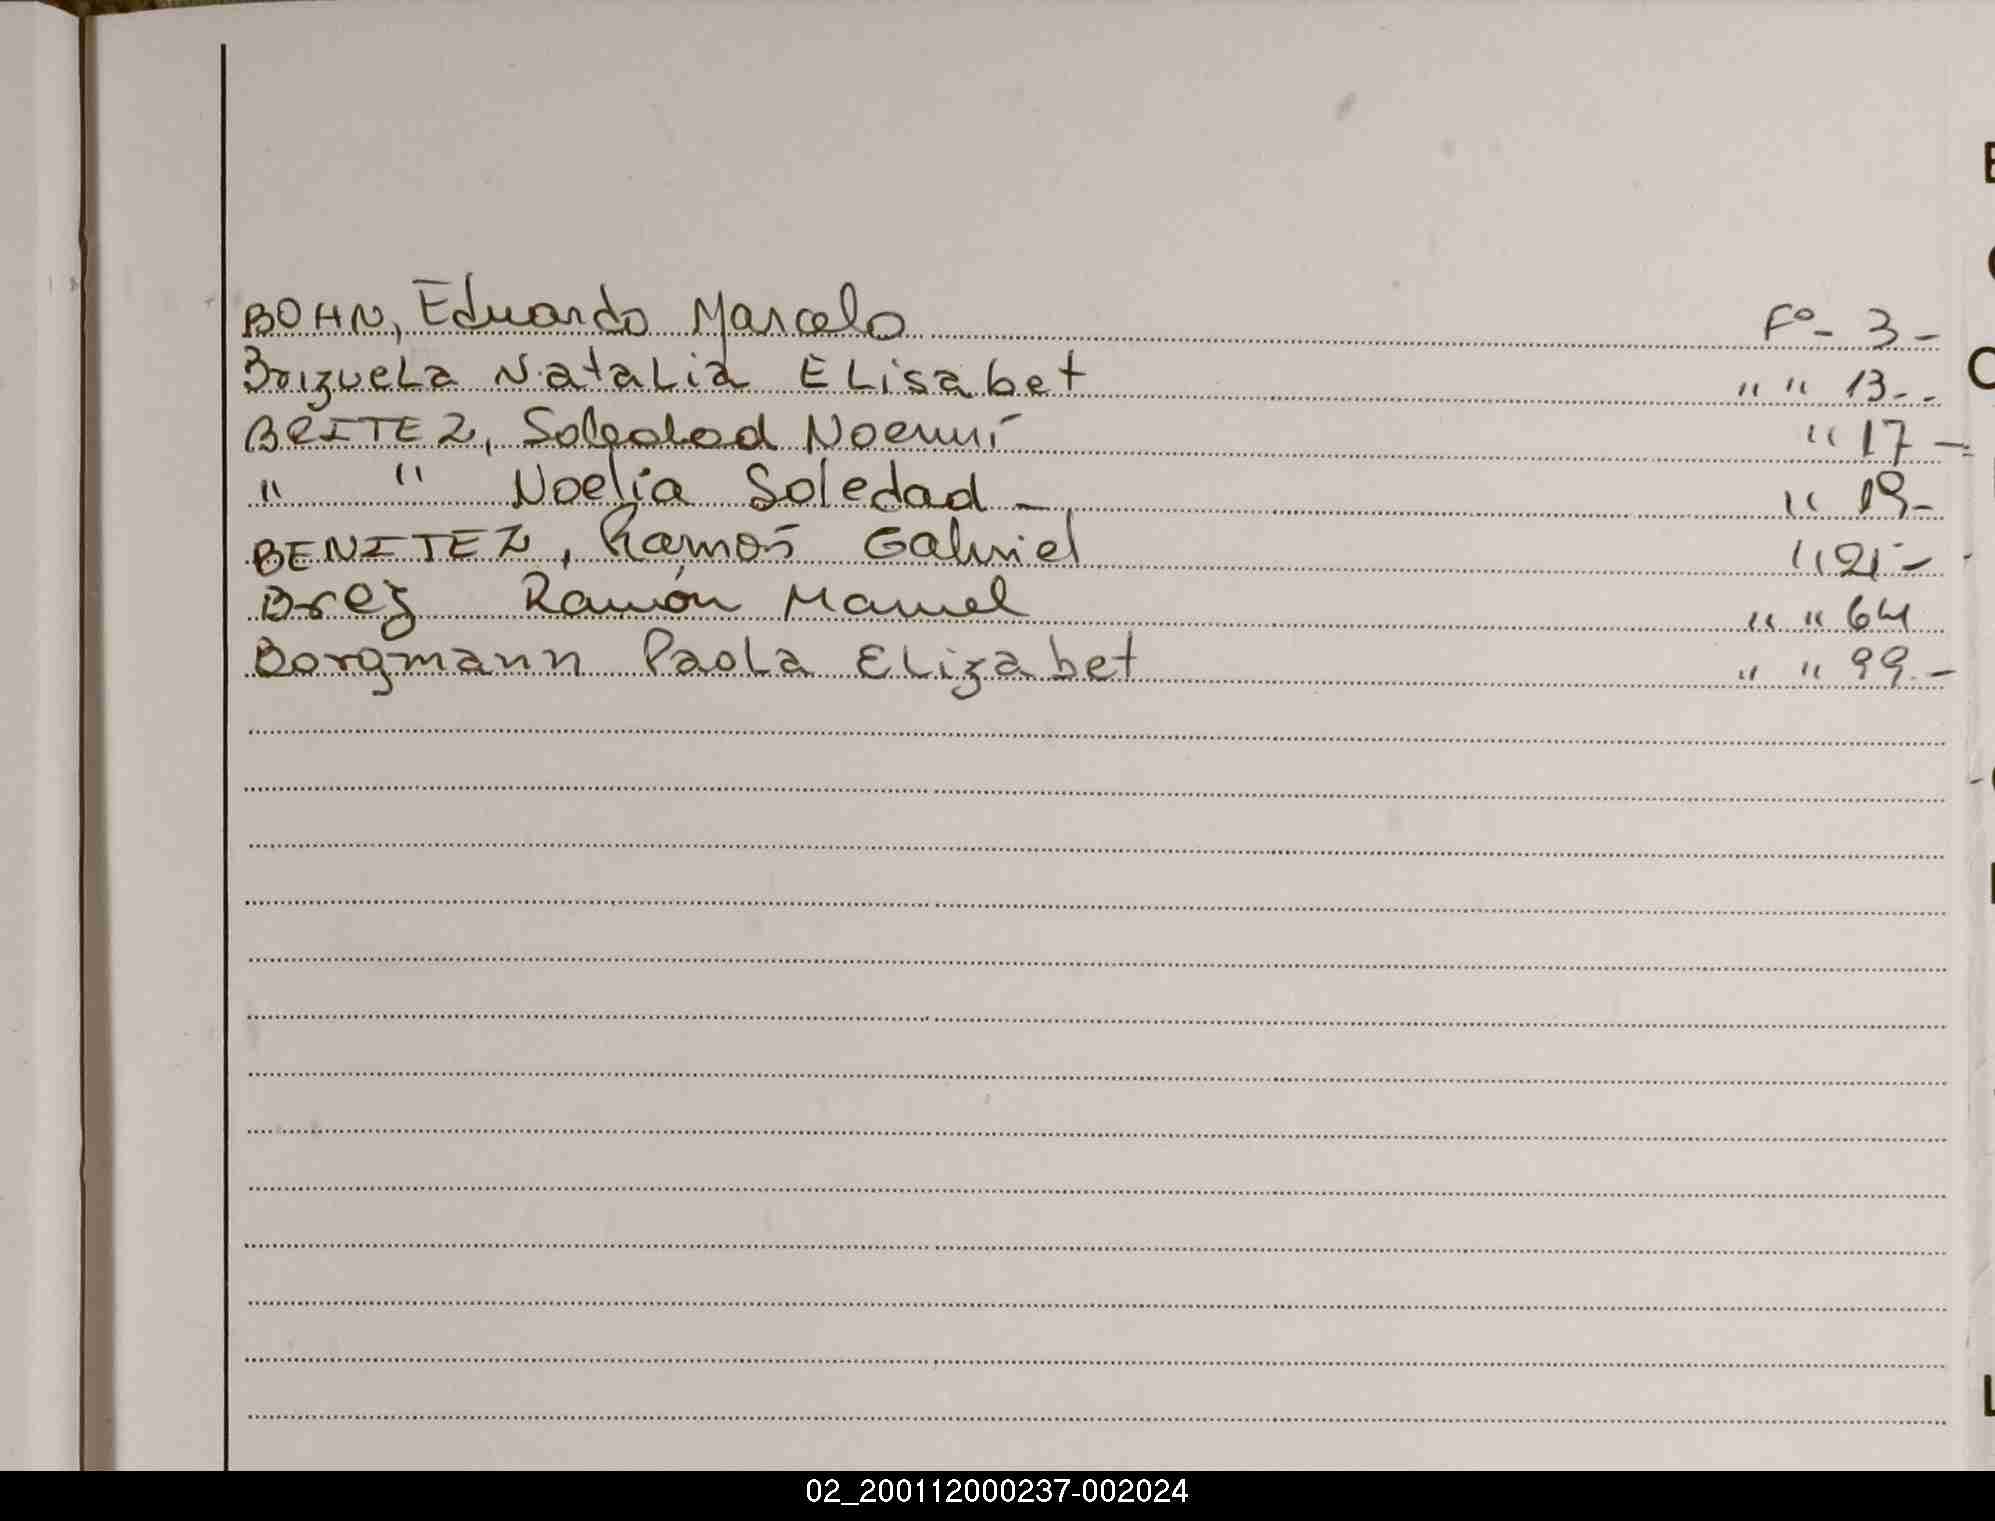 BOHN, Eduardo Marcelo Fº- 3-
Brizuela Natalia Elisabet " " 13--
BRITEZ, Soledad Noemí " 17 -
" " Noelia Soledad - " 19-
BENITEZ, Ramos Gabriel " 21 -
Brez Ramón Manuel " " 64
Borgmann Paola Elizabet " " 99.-
02_200112000237-002024